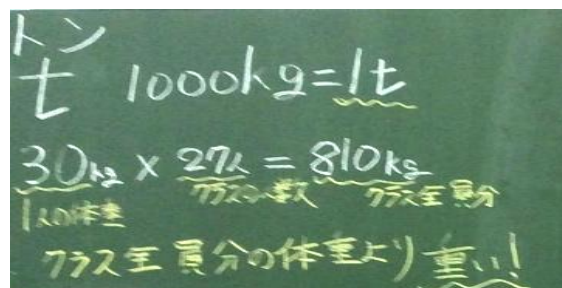 トン
t 1000kg=1t
30kg × 27人 = 810kg
1人の体重 クラスの人数 クラス全員分
クラス全員分の体重より重い!